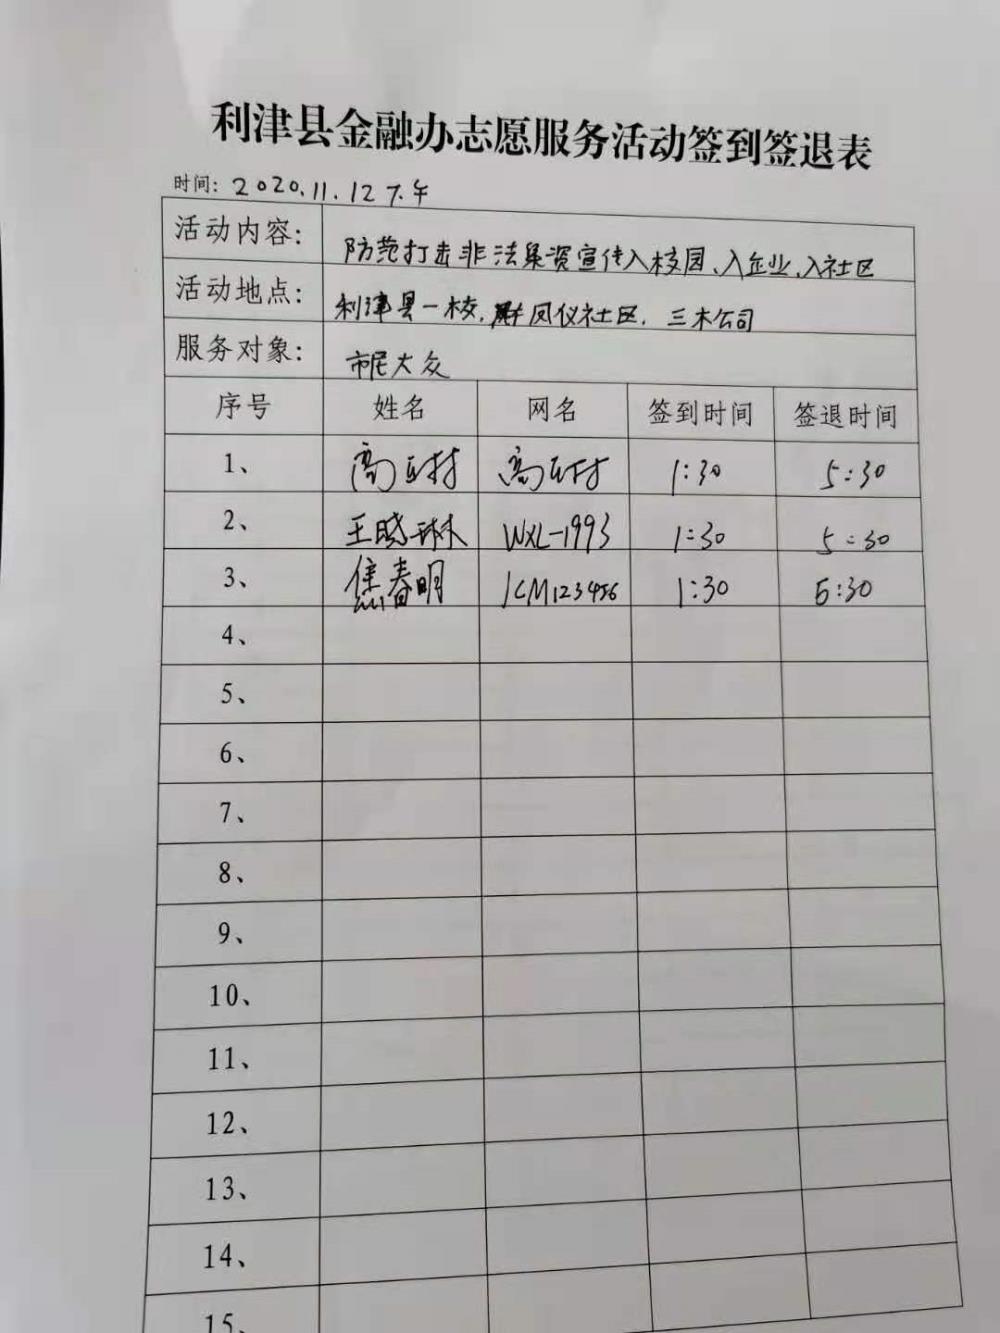 利津县金融办志愿服务活动签到签退表
时间: 2020.11.12下午
活动内容: 防范打击非法集资宣传入校园、入企业、入社区
活动地点: 利津县一校, 凤仪社区, 三木公司
服务对象: 市民大众
序号 姓名 网名 签到时间 签退时间
1、 高 高 1:30 5:30
2、 王晓琳 WXL-1993 1:30 5:30
3、 焦春明 JCM123456 1:30 5:30
4、
5、
6、
7、
8、
9、
10、
11、
12、
13、
14、
15、